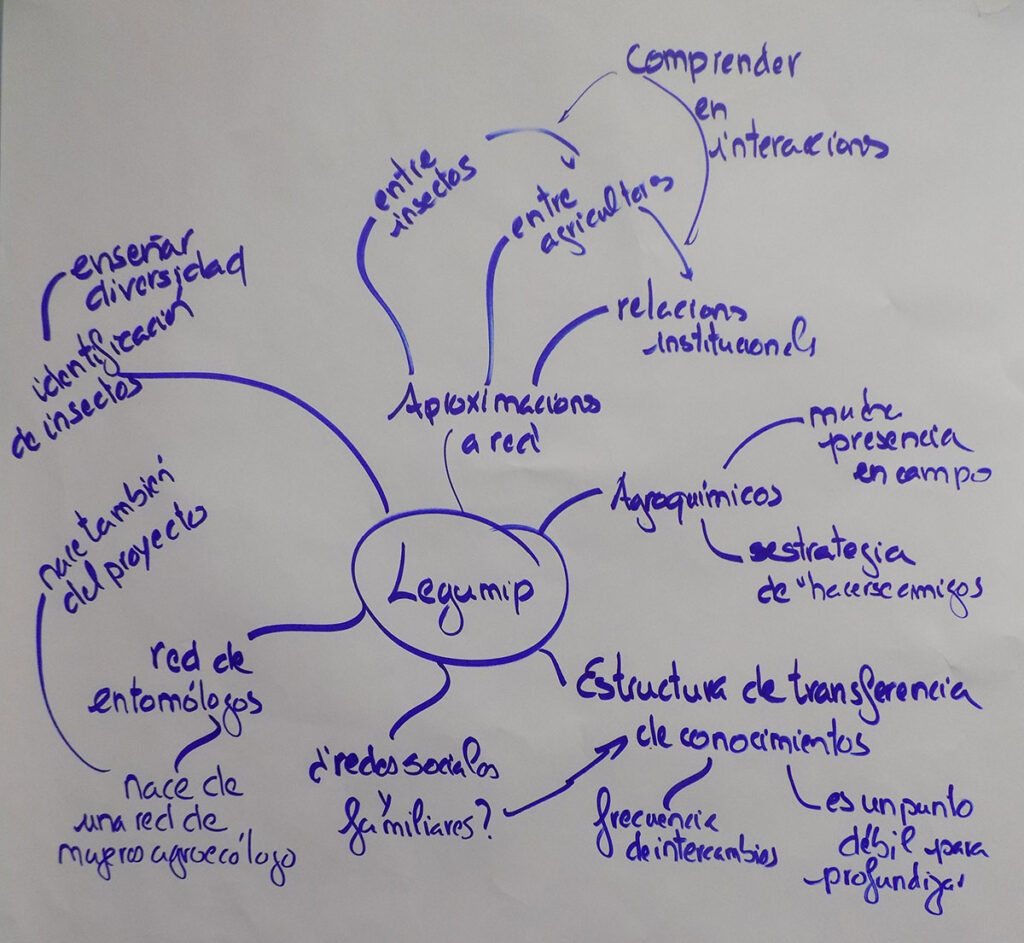 comprender
en
interaccions
entre
insectos
entre
agricultores
relacions
institucionals
Aproximacions
a red
enseñar
diversidad
identificación
de insectos
mucha
presencia
en campo
Agroquímicos
estrategia
de "hacerse amigos
nace también
del proyecto
Legumip
red de
entomólogos
nace de
una red de
mujeres agroecólogo
¿redes sociales
y
familiares?
Estructura de transferencia
de conocimientos
frecuencia
de intercambios
es un punto
débil para
profundizar